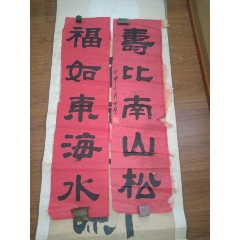 壽比南山松
福如東海水